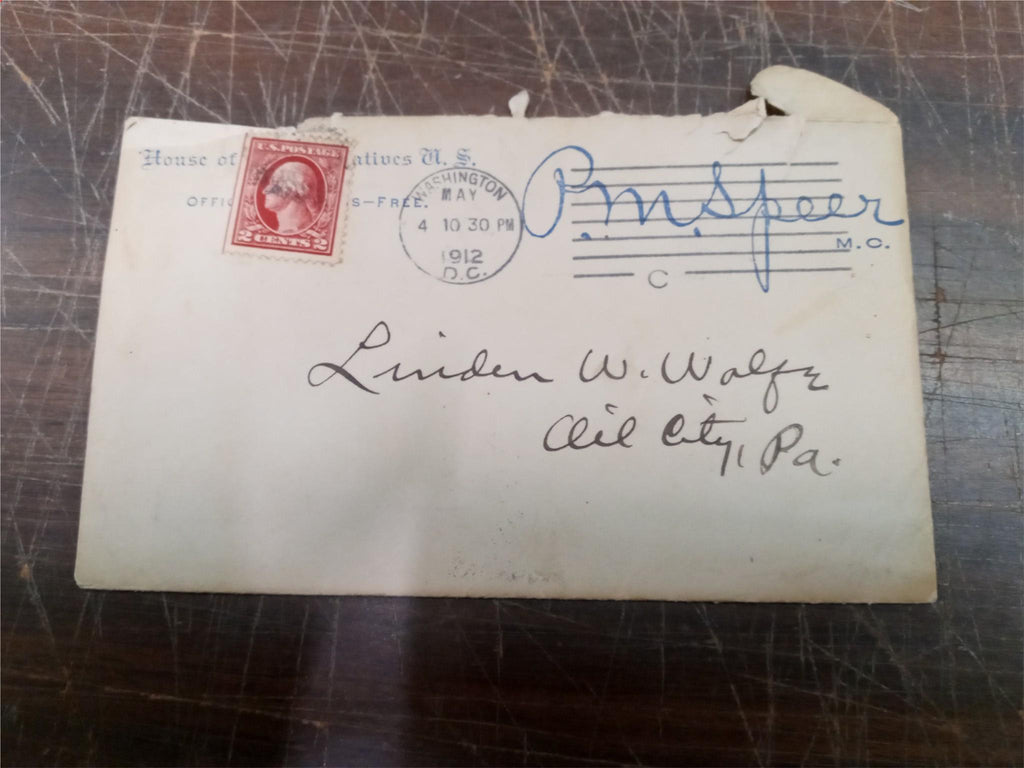 House of atives U. S.
OFFIC S—FREE.
U.S. POSTAGE
2 CENTS 2
WASHINGTON
MAY
4 10 30 PM
1912
D.C.
P. M. Speer
M. C.
C
Linden W. Wolfe
Oil City, Pa.